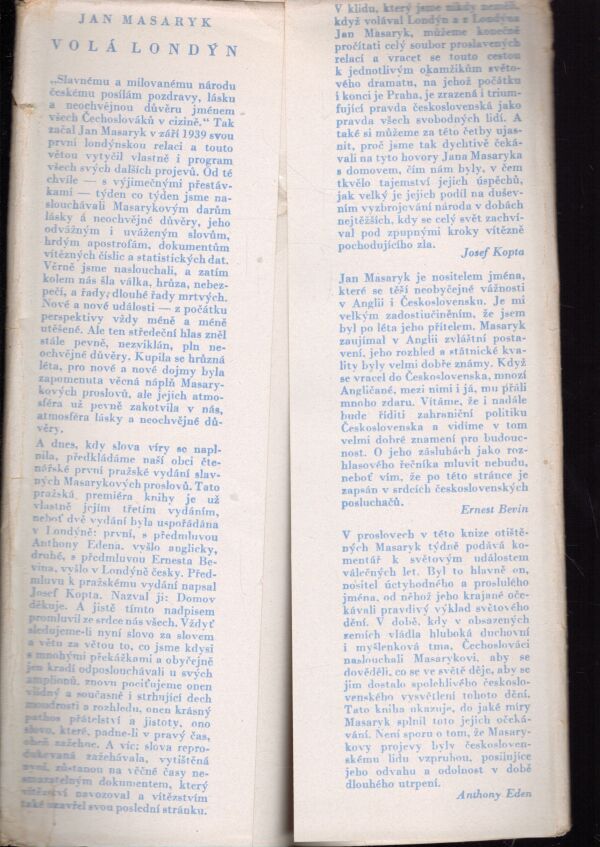 JAN MASARYK
VOLÁ LONDÝN
„Slavnému a milovanému národu
českému posílám pozdravy, lásku
a neochvějnou důvěru jménem
všech Čechoslováků v cizině.“ Tak
začal Jan Masaryk v září 1939 svou
první londýnskou relaci a touto
větou vytyčil vlastně i program
všech svých dalších projevů. Od té
chvíle — s výjimečnými přestáv-
kami — týden co týden jsme na-
slouchávali Masarykovým darům
lásky a neochvějné důvěry, jeho
odvážným i uváženým slovům,
hrdým apostrofám, dokumentům
vítězných číslic a statistických dat.
Věrně jsme naslouchali, a zatím
kolem nás šla válka, hrůza, nebez-
pečí, a řady, dlouhé řady mrtvých.
Nové a nové události — z počátku
perspektivy vždy méně a méně
utěšené. Ale ten středeční hlas zněl
stále pevně, nezviklán, pln ne-
ochvějné důvěry. Kupila se hrůzná
léta, pro nové a nové dojmy byla
zapomenuta věcná náplň Masary-
kových proslovů, ale jejich atmo-
sféra už pevně zakotvila v nás,
atmosféra lásky a neochvějné dů-
věry.
A dnes, kdy slova víry se napl-
nila, předkládáme naší obci čte-
nářské první pražské vydání slav-
ných Masarykových proslovů. Tato
pražská premiéra knihy je už
vlastně jejím třetím vydáním,
neboť dvě vydání byla uspořádána
v Londýně: první, s předmluvou
Anthony Edena, vyšlo anglicky,
druhé, s předmluvou Ernesta Be-
vina, vyšlo v Londýně česky. Před-
mluvu k pražskému vydání napsal
Josef Kopta. Nazval ji: Domov
děkuje. A jistě tímto nadpisem
promluvil ze srdce nás všech. Vždyť
sledujeme-li nyní slovo za slovem
a větu za větou to, co jsme kdysi
s mnohými překážkami a obyčejně
jen kradí odposlouchávali u svých
amplionů, znovu pociťujeme onen
vlídný a současně i strhující dech
moudrosti a rozhledu, onen krásný
pathos přátelství a jistoty, ono
slovo, které, padne-li v pravý čas,
oheň zažehne. A víc: slova repro-
dukovaná zažehávala, vytištěná
nyní, zůstanou na věčné časy ne-
smazatelným dokumentem, který
vítězství navozoval a vítězstvím
také uzavřel svou poslední stránku.
V klidu, který jsme nikdy neměli,
když volával Londýn a z Londýna
Jan Masaryk, můžeme konečně
pročítati celý soubor proslavených
relací a vracet se touto cestou
k jednotlivým okamžikům světo-
vého dramatu, na jehož počátku
i konci je Praha, je zrazená i trium-
fující pravda československá jako
pravda všech svobodných lidí. A
také si můžeme za této četby ujas-
nit, proč jsme tak dychtivě čeká-
vali na tyto hovory Jana Masaryka
s domovem, čím nám byly, v čem
tkvělo tajemství jejich úspěchů,
jak velký je jejich podíl na dušev-
ním vyzbrojování národa v dobách
nejtěžších, kdy se celý svět zachví-
val pod zpupnými kroky vítězně
pochodujícího zla.
Josef Kopta
Jan Masaryk je nositelem jména,
které se těší neobyčejné vážnosti
v Anglii i Československu. Je mi
velkým zadostiučiněním, že jsem
byl po léta jeho přítelem. Masaryk
zaujímal v Anglii zvláštní posta-
vení, jeho rozhled a státnické kva-
lity byly velmi dobře známy. Když
se vracel do Československa, mnozí
Angličané, mezi nimi i já, mu přáli
mnoho zdaru. Vítáme, že i nadále
bude říditi zahraniční politiku
Československa a vidíme v tom
velmi dobré znamení pro budouc-
nost. O jeho záslubách jako roz-
hlasového řečníka mluvit nebudu,
neboť vím, že po této stránce je
zapsán v srdcích československých
posluchačů.
Ernest Bevin
V proslovech v této knize otiště-
ných Masaryk týdně podává ko-
mentář k světovým událostem
válečných let. Byl to hlavně on,
nositel úctyhodného a proslulého
jména, od něhož jeho krajané oče-
kávali pravdivý výklad světového
dění. V době, kdy v obsazených
zemích vládla hluboká duchovní
i myšlenková tma, Čechoslováci
naslouchali Masarykovi, aby se
dověděli, co se ve světě děje, aby se
jim dostalo spolehlivého českoslo-
venského vysvětlení tohoto dění.
Tato kniha ukazuje, do jaké míry
Masaryk splnil toto jejich očeká-
vání. Není sporu o tom, že Masary-
kovy projevy byly českosloven-
skému lidu vzpruhou, posilujíce
jeho odvahu a odolnost v době
dlouhého utrpení.
Anthony Eden